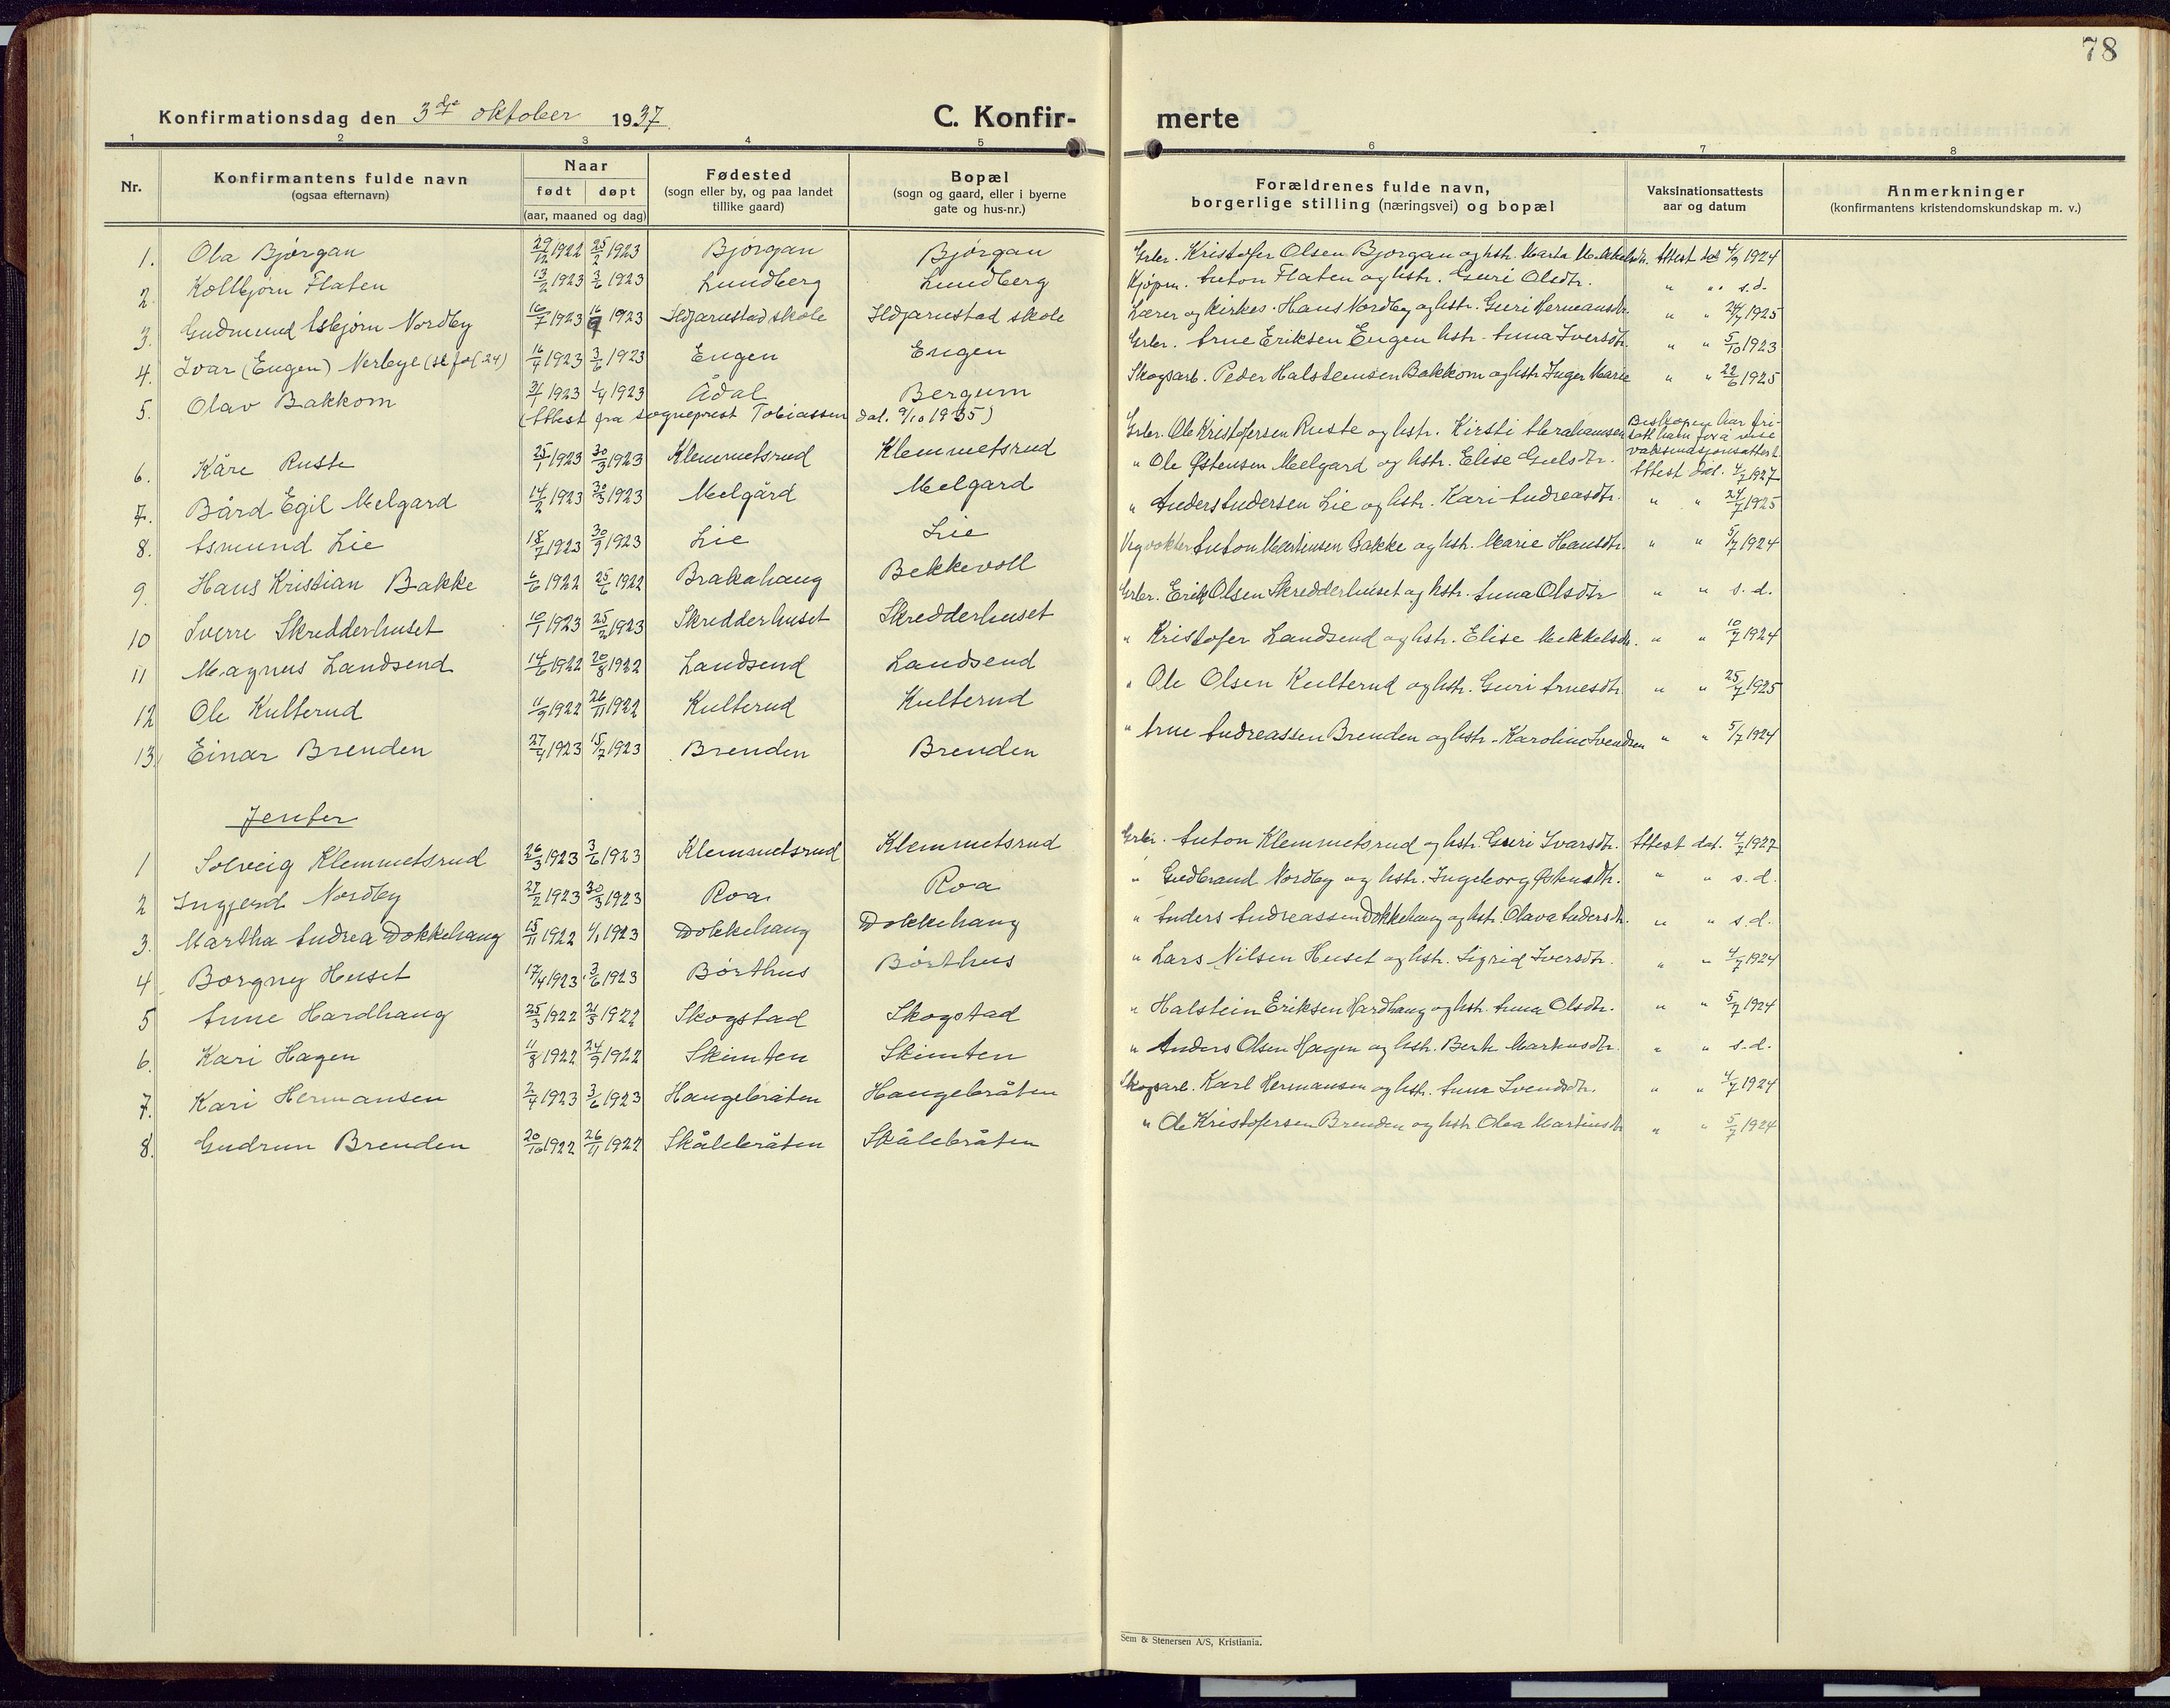 78
Konfirmationsdag den 3dje oktober 1937.
C. Konfirmerte
1 2 3 4 5 6 7 8
Nr. | Konfirmantens fulde navn (ogsaa efternavn) | Naar født døpt (aar, maaned og dag) | Fødested (sogn eller by, og paa landet tillike gaard) | Bopæl (sogn og gaard, eller i byerne gate og hus-nr.) | Forældrenes fulde navn, borgerlige stilling (næringsvei) og bopæl | Vaksinationsattests aar og datum | Anmerkninger (konfirmantens kristendomskundskap m. v.)
1. Ola Bjørgan 29/12 1922 25/2 1923 Bjørgan Bjørgan Grbr. Kristofer Olsen Bjørgan og hstr. Marta Mikkelsdtr. Attest dat 4/9 1924
2. Kollbjørn Flaten 13/2 1923 3/6 1923 Lundberg Lundberg Kjøpm. Anton Flaten og hstr. Guri Olsdtr. " " s.d.
3. Gudmund Asbjørn Nordby 16/7 1923 16/9 1923 Ildjarnstad skole Ildjarnstad skole Lærer og kirkes. Hans Nordby og hstr. Guri Hermansdtr. " " 24/7 1925
4. Ivar (Eugen) Nerbye (se fol 24) 16/4 1923 3/6 1923 Engen Engen Grbr. Arne Eriksen Engen hstr. Anna Iversdtr. " " 5/10 1923
5. Olav Bakkom 31/1 1923 1/4 1923 Ådal Bergum Skogsarb. Peder Halsteinsen Bakkom og hstr Inger Marie " " 22/6 1925
(Attest fra sogneprest Tobiassen dat. 9/10 1935)
6. Kåre Ruste 25/1 1923 30/3 1923 Klemmetsrud Klemmetsrud Grbr. Ole Kristofersen Ruste og hstr. Kirsti Abrahamsen Biskopen har fritatt ham for å vise vaksinasjonsattest.
7. Bård Egil Melgard 14/2 1923 30/3 1923 Melgård Melgard " Ole Østensen Melgard og hstr. Elise Gulsdtr. Attest dat. 4/7 1927
8. Asmund Lie 18/7 1923 30/9 1923 Lie Lie " Anders Andersen Lie og hstr. Kari Andreasdtr. " " 24/7 1925
9. Hans Kristian Bakke 6/6 1922 25/6 1922 Brakahaug Bekkevoll Vegvokter Anton Martinsen Bakke og hstr. Marie Hansdtr. " " 5/7 1924
10 Sverre Skredderhuset 10/1 1923 25/2 1923 Skredderhuset Skredderhuset Grbr. Erik Olsen Skredderhuset og hstr. Anna Olsdtr " " s.d.
11 Magnus Landsend 14/6 1922 20/8 1922 Landsend Landsend " Kristofer Landsend og hstr. Elise Mikkelsdtr. " " 10/7 1924
12 Ole Kulterud 11/9 1922 26/11 1922 Kulterud Kulterud " Ole Olsen Kulterud og hstr. Guri Arnesdtr. " " 25/7 1925
13. Einar Brenden 27/4 1923 15/7 1923 Brenden Brenden " Arne Andreassen Brenden og hstr. Karoline Svendsen " " 5/7 1924
Jenter
1 Solveig Klemmetsrud 26/3 1923 3/6 1923 Klemmetsrud Klemmetsrud Grbr. Anton Klemmetsrud og hstr. Guri Ivarsdtr. Attest dat. 4/7 1927
2 Ingjerd Nordby 27/2 1923 30/3 1923 Roa Roa " Gudbrand Nordby og hstr. Ingeborg " " s.d.
3. Martha Andrea Dokkehaug 15/11 1922 1/1 1923 Dokkehaug Dokkehaug " Anders Andreassen Dokkehaug og hstr. Olava Andersdtr. " " s.d.
4 Borgny Huset 17/4 1923 3/6 1923 Børthus Børthus " Lars Nilsen Huset og hstr. Sigrid Iversdtr. " " 4/7 1924
5 Anne Hardhaug 25/3 1922 21/5 1922 Skogstad Skogstad " Halstein Eriksen Hardhaug og hstr. Anna Olsdtr. " " 5/7 1924
6. Kari Hagen 11/8 1922 24/9 1922 Skimten Skimten " Anders Olsen Hagen og hstr. Berte Markusdtr. " " s.d.
7. Kari Hermansen 2/4 1923 3/6 1923 Haugebråten Haugebråten Skogsarb. Karl Hermansen og hstr. Anna Svendsdtr. " " 4/7 1924
8. Gudrun Brenden 20/10 1922 26/11 1922 Skålebråten Skålebråten " Ole Kristofersen Brenden og hstr Olea Martinsdtr " " 5/7 1924
Sem & Stenersen A/S, Kristiania.